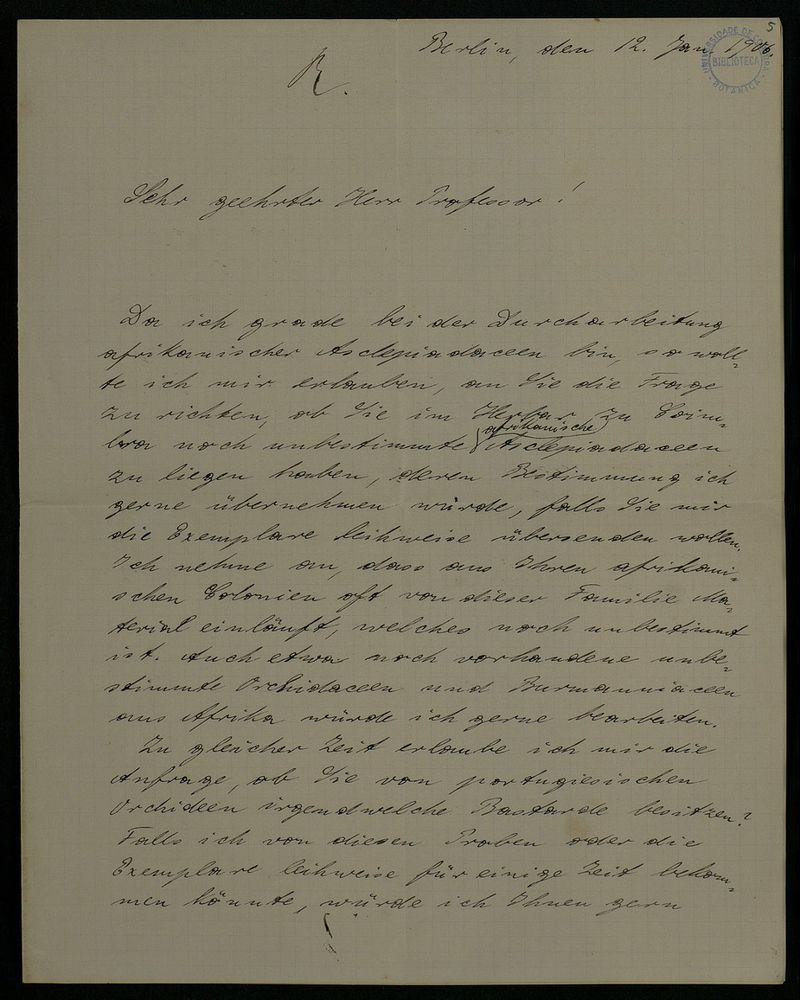 5
Berlin, den 12. Jan. 1906.
UNIVERSIDADE DE COIMBRA
BIBLIOTECA
BOTANICA
R.
Sehr geehrter Herr Professor!
Da ich grade bei der Durcharbeitung
afrikanischer Asclepiadaceen bin, so woll-
te ich mir erlauben, an Sie die Frage
zu richten, ob Sie im Herbar zu Coim-
afrikanische
bra noch unbestimmte Asclepiadaceen
zu liegen haben, deren Bestimmung ich
gerne übernehmen würde, falls Sie mir
die Exemplare leihweise übersenden wollen.
Ich nehme an, dass aus Ihren afrikani-
schen Colonien oft von dieser Familie Ma-
terial einläuft, welches noch unbestimmt
ist. Auch etwa noch vorhandene unbe-
stimmte Orchidaceen und Burmanniaceen
aus Afrika würde ich gerne bearbeiten.
Zu gleicher Zeit erlaube ich mir die
Anfrage, ob Sie von portugiesischen
Orchideen irgendwelche Bastarde besitzen?
Falls ich von diesen Proben oder die
Exemplare leihweise für einige Zeit bekom-
men könnte, würde ich Ihnen gern